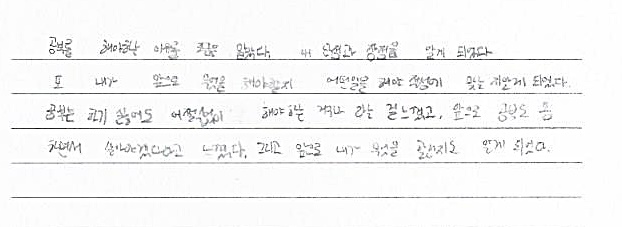 공부를 해야하는 이유를 조금은 알았다. 내 단점과 장점을 알게 되었다
또 내가 앞으로 무엇을 해야할지 어떤일을 해야 적성에 맞는지알게 되었다.
공부는 하기 싫어도 어쩔수없이 해야 하는 거구나 라는 걸느꼈고, 앞으로 공부도 좀
하면서 살아야겠다라고 느꼈다. 그리고 앞으로 내가 무엇을 할건지도 알게 되었다.